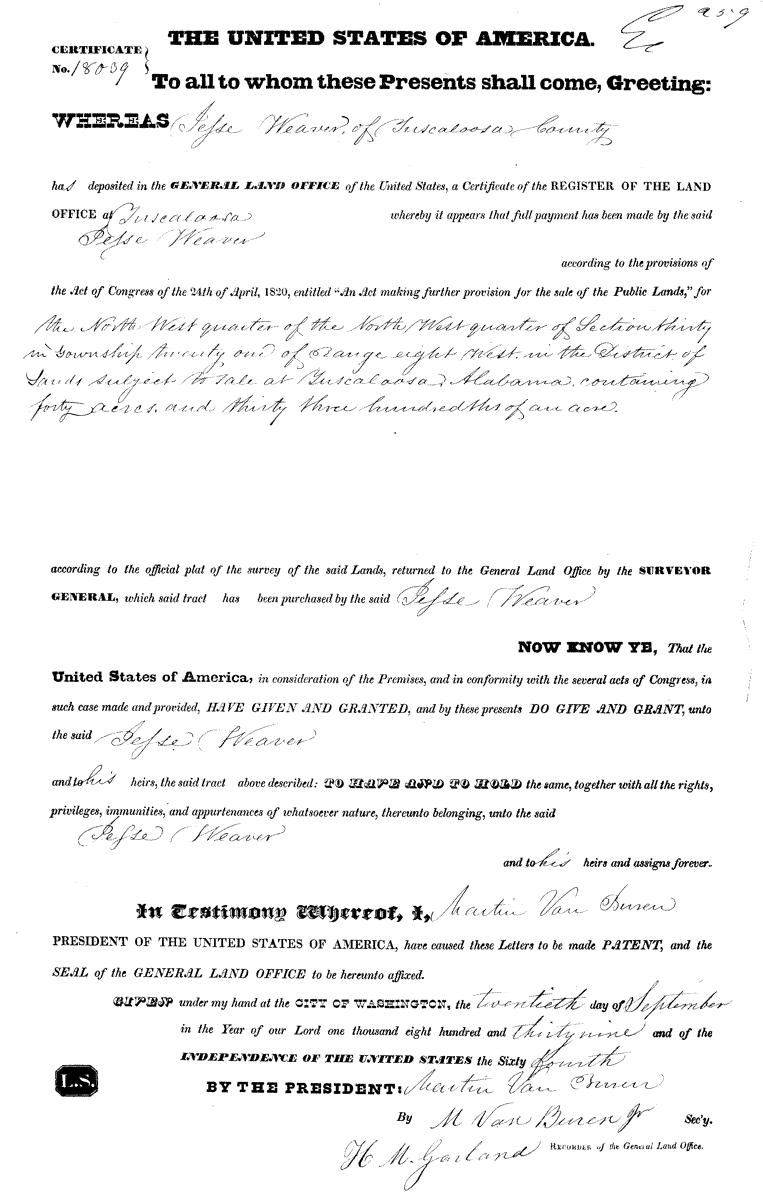 THE UNITED STATES OF AMERICA.
259
CERTIFICATE
No. 18039
To all to whom these Presents shall come, Greeting:
WHEREAS Jesse Weaver, of Tuscaloosa County
has deposited in the GENERAL LAND OFFICE of the United States, a Certificate of the REGISTER OF THE LAND
OFFICE at Tuscaloosa whereby it appears that full payment has been made by the said
Jesse Weaver
according to the provisions of
the Act of Congress of the 24th of April, 1820, entitled "An Act making further provision for the sale of the Public Lands," for
the North West quarter of the North West quarter of Section thirty
in Township twenty one of Range eight West, in the District of
Lands subject to sale at Tuscaloosa, Alabama, containing
forty acres, and thirty three hundredths of an acre.
according to the official plat of the survey of the said Lands, returned to the General Land Office by the SURVEYOR
GENERAL, which said tract has been purchased by the said Jesse Weaver
NOW KNOW YE, That the
United States of America, in consideration of the Premises, and in conformity with the several acts of Congress, in
such case made and provided, HAVE GIVEN AND GRANTED, and by these presents DO GIVE AND GRANT, unto
the said Jesse Weaver
and to his heirs, the said tract above described: TO HAVE AND TO HOLD the same, together with all the rights,
privileges, immunities, and appurtenances of whatsoever nature, thereunto belonging, unto the said
Jesse Weaver
and to his heirs and assigns forever.
In Testimony Whereof, I, Martin Van Buren
PRESIDENT OF THE UNITED STATES OF AMERICA, have caused these Letters to be made PATENT, and the
SEAL of the GENERAL LAND OFFICE to be hereunto affixed.
GIVEN under my hand at the CITY OF WASHINGTON, the twentieth day of September
in the Year of our Lord one thousand eight hundred and thirty nine and of the
INDEPENDENCE OF THE UNITED STATES the Sixty fourth
L.S.
BY THE PRESIDENT: Martin Van Buren
By M Van Buren Jr Sec'y.
H. M. Garland RECORDER of the General Land Office.